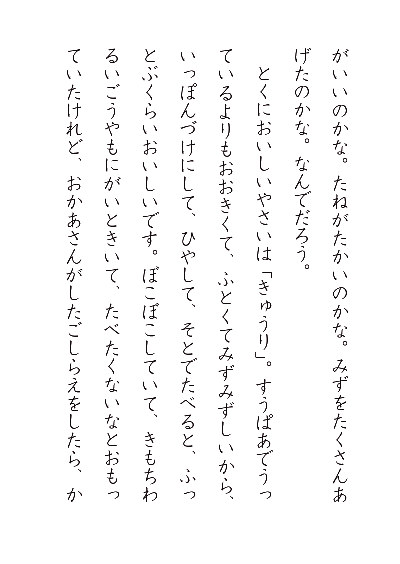 がいいのかな。たねがたかいのかな。みずをたくさんあ
げたのかな。なんでだろう。
　とくにおいしいやさいは「きゅうり」。すうぱあでうっ
ているよりもおおきくて、ふとくてみずみずしいから、
いっぽんづけにして、ひやして、そとでたべると、ふっ
とぶくらいおいしいです。ぼこぼこしていて、きもちわ
るいごうやもにがいときいて、たべたくないなとおもっ
ていたけれど、おかあさんがしたごしらえをしたら、か